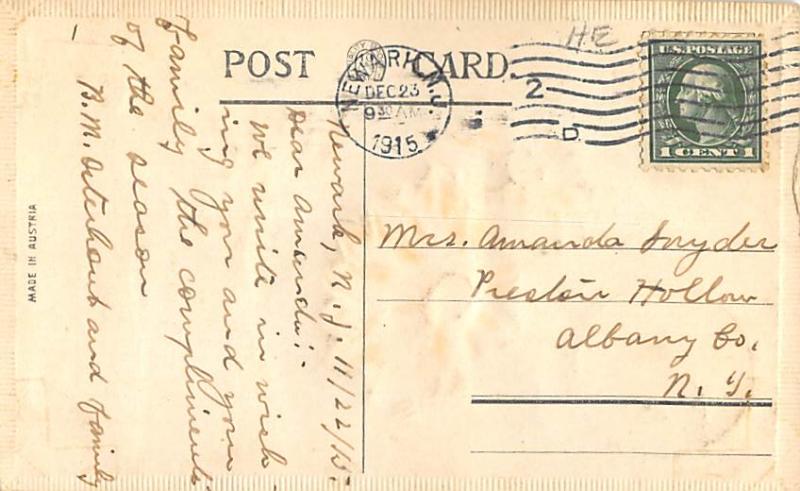 POST CARD
HE
NEWARK, N.J.
DEC 23
9 30 AM
1915
2
D
U.S. POSTAGE
1 CENT 1
Newark, N. J. 11/22/15.
Dear Amanda:
We unite in wish
ing you and your
family the compliments
of the season
- B. M. Osterhout and family
Mrs. Amanda Snyder
Preston Hollow
Albany Co.
N. Y.
MADE IN AUSTRIA